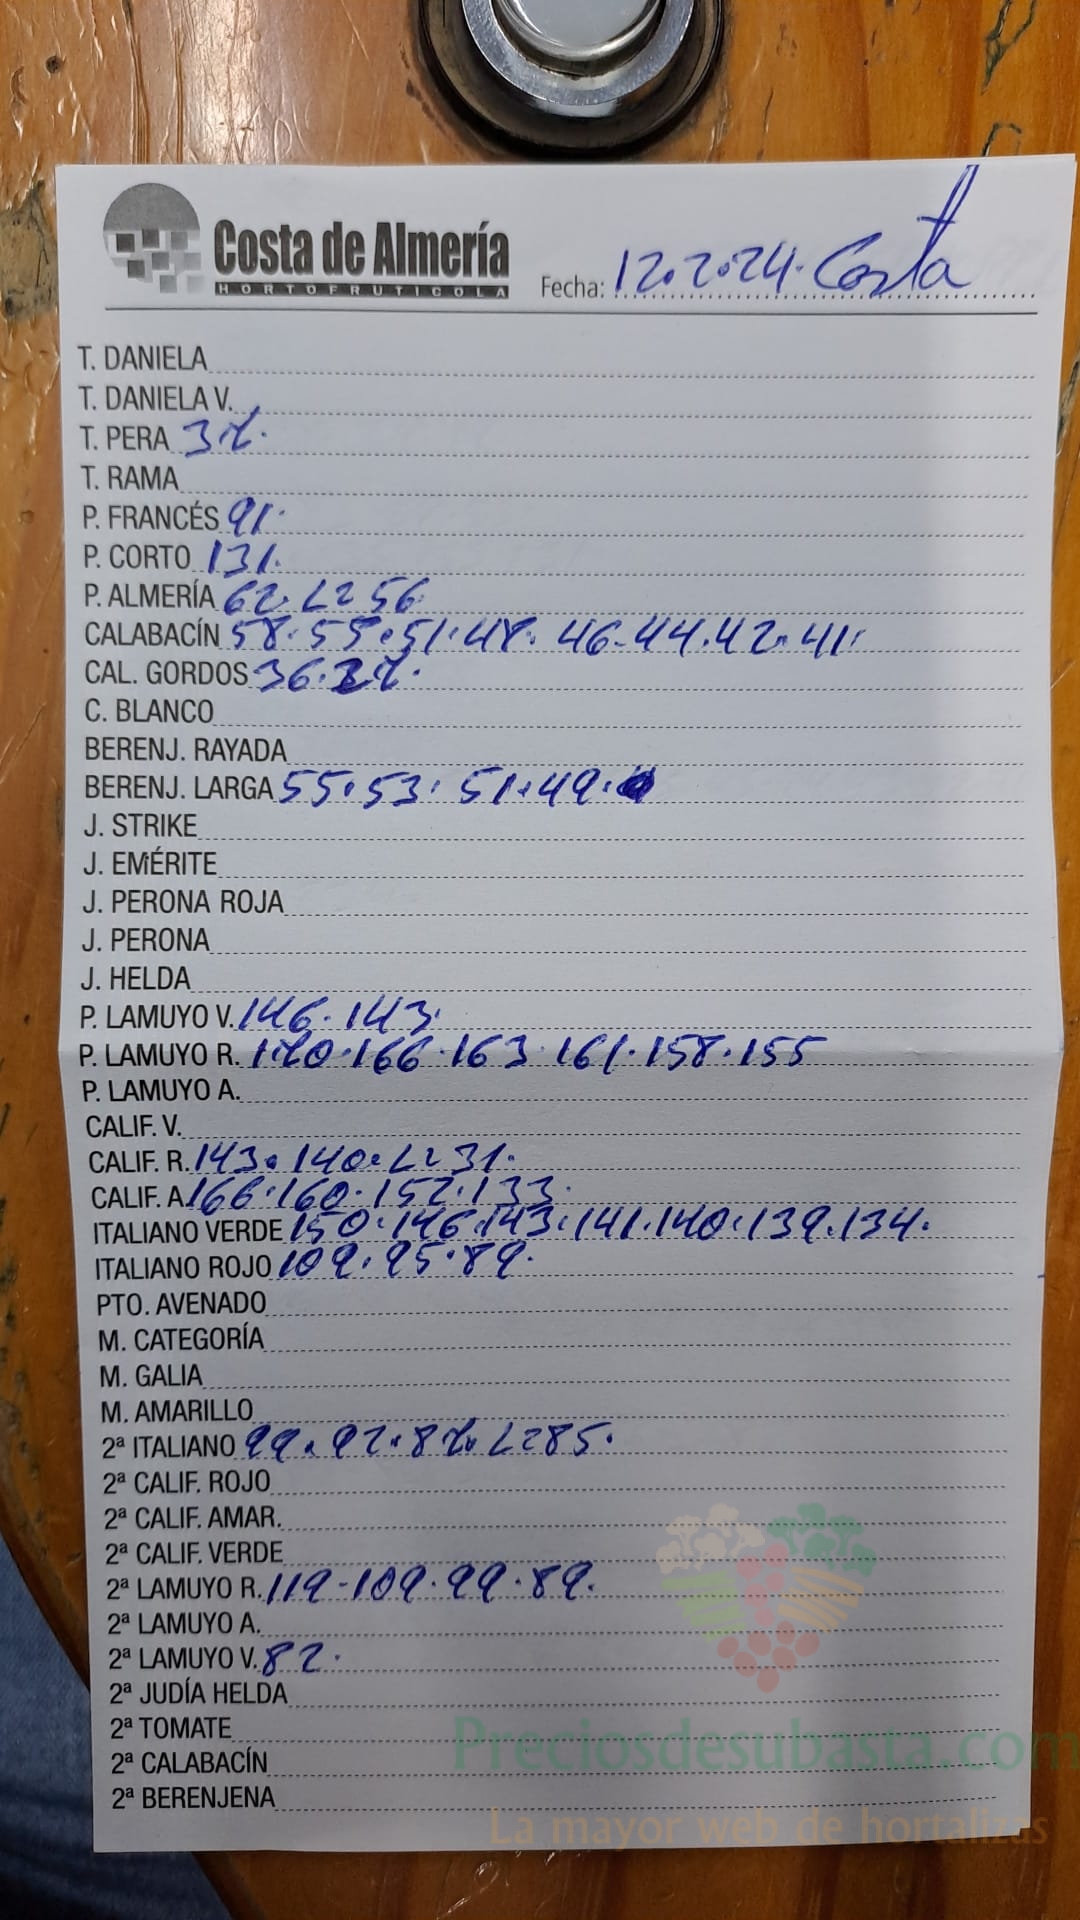 Costa de Almería
HORTOFRUTICOLA
Fecha: 12.2.24. Costa
T. DANIELA
T. DANIELA V.
T. PERA 37.
T. RAMA
P. FRANCÉS 91.
P. CORTO 131.
P. ALMERÍA 62. L= 56
CALABACÍN 58. 55. 51. 48. 46. 44. 42. 41.
CAL. GORDOS 36. 27.
C. BLANCO
BERENJ. RAYADA
BERENJ. LARGA 55. 53. 51. 49.
J. STRIKE
J. EMÉRITE
J. PERONA ROJA
J. PERONA
J. HELDA
P. LAMUYO V. 146. 143.
P. LAMUYO R. 170. 166. 163. 161. 158. 155
P. LAMUYO A.
CALIF. V.
CALIF. R. 143. 140. L= 31.
CALIF. A 166. 160. 152. 133.
ITALIANO VERDE 150. 146. 143. 141. 140. 139. 134.
ITALIANO ROJO 109. 95. 89.
PTO. AVENADO
M. CATEGORÍA
M. GALIA
M. AMARILLO
2ª ITALIANO 99. 92. 87. L= 85.
2ª CALIF. ROJO
2ª CALIF. AMAR.
2ª CALIF. VERDE
2ª LAMUYO R. 119 - 109. 99. 89.
2ª LAMUYO A.
2ª LAMUYO V. 82.
2ª JUDÍA HELDA
2ª TOMATE
2ª CALABACÍN
2ª BERENJENA
Preciosdesubasta.com
La mayor web de hortalizas